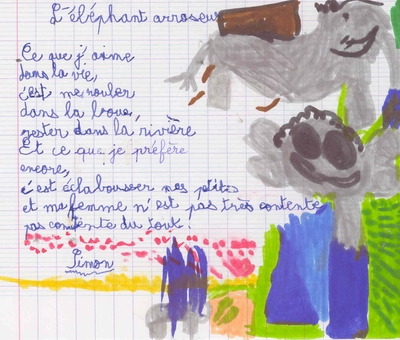 L'éléphant arroseur
Ce que j'aime
dans la vie,
c'est me rouler
dans la boue,
rester dans la rivière
Et ce que je préfère
encore,
c'est éclabousser mes ptites
et ma femme n'est pas très contente
pas contente du tout.
Simon